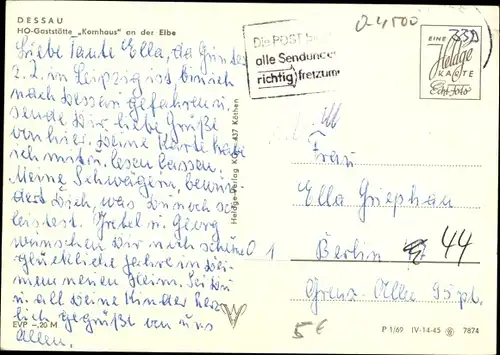 DESSAU
HO-Gaststätte „Kornhaus" an der Elbe
Liebe Tante Ella, da Günter
z.Z. in Leipzig ist bin ich
nach Dessau gefahren u.
sende Dir liebe Grüße
von hier. Deine Karte habe
ich mit lesen lassen.
Meine Schwägerin, bewun-
dert Dich, was Du noch so
leistest. Gretel u. Georg
wünschen Dir noch schöne
glückliche Jahre in Dei-
nem neuen Heim. Sei Du
u. all Deine Kinder herz-
lich gegrüßt von uns
Allen.
EVP -,20 M
Heldge-Verlag KG 437 Köthen
Die POST
alle Sendungen
richtig freizum
O 4500
EINE
Heldge
KARTE
Echt Foto
33D
Frau
Ella
O 1 Berlin 44
5€
P 1/69 IV-14-45 7874